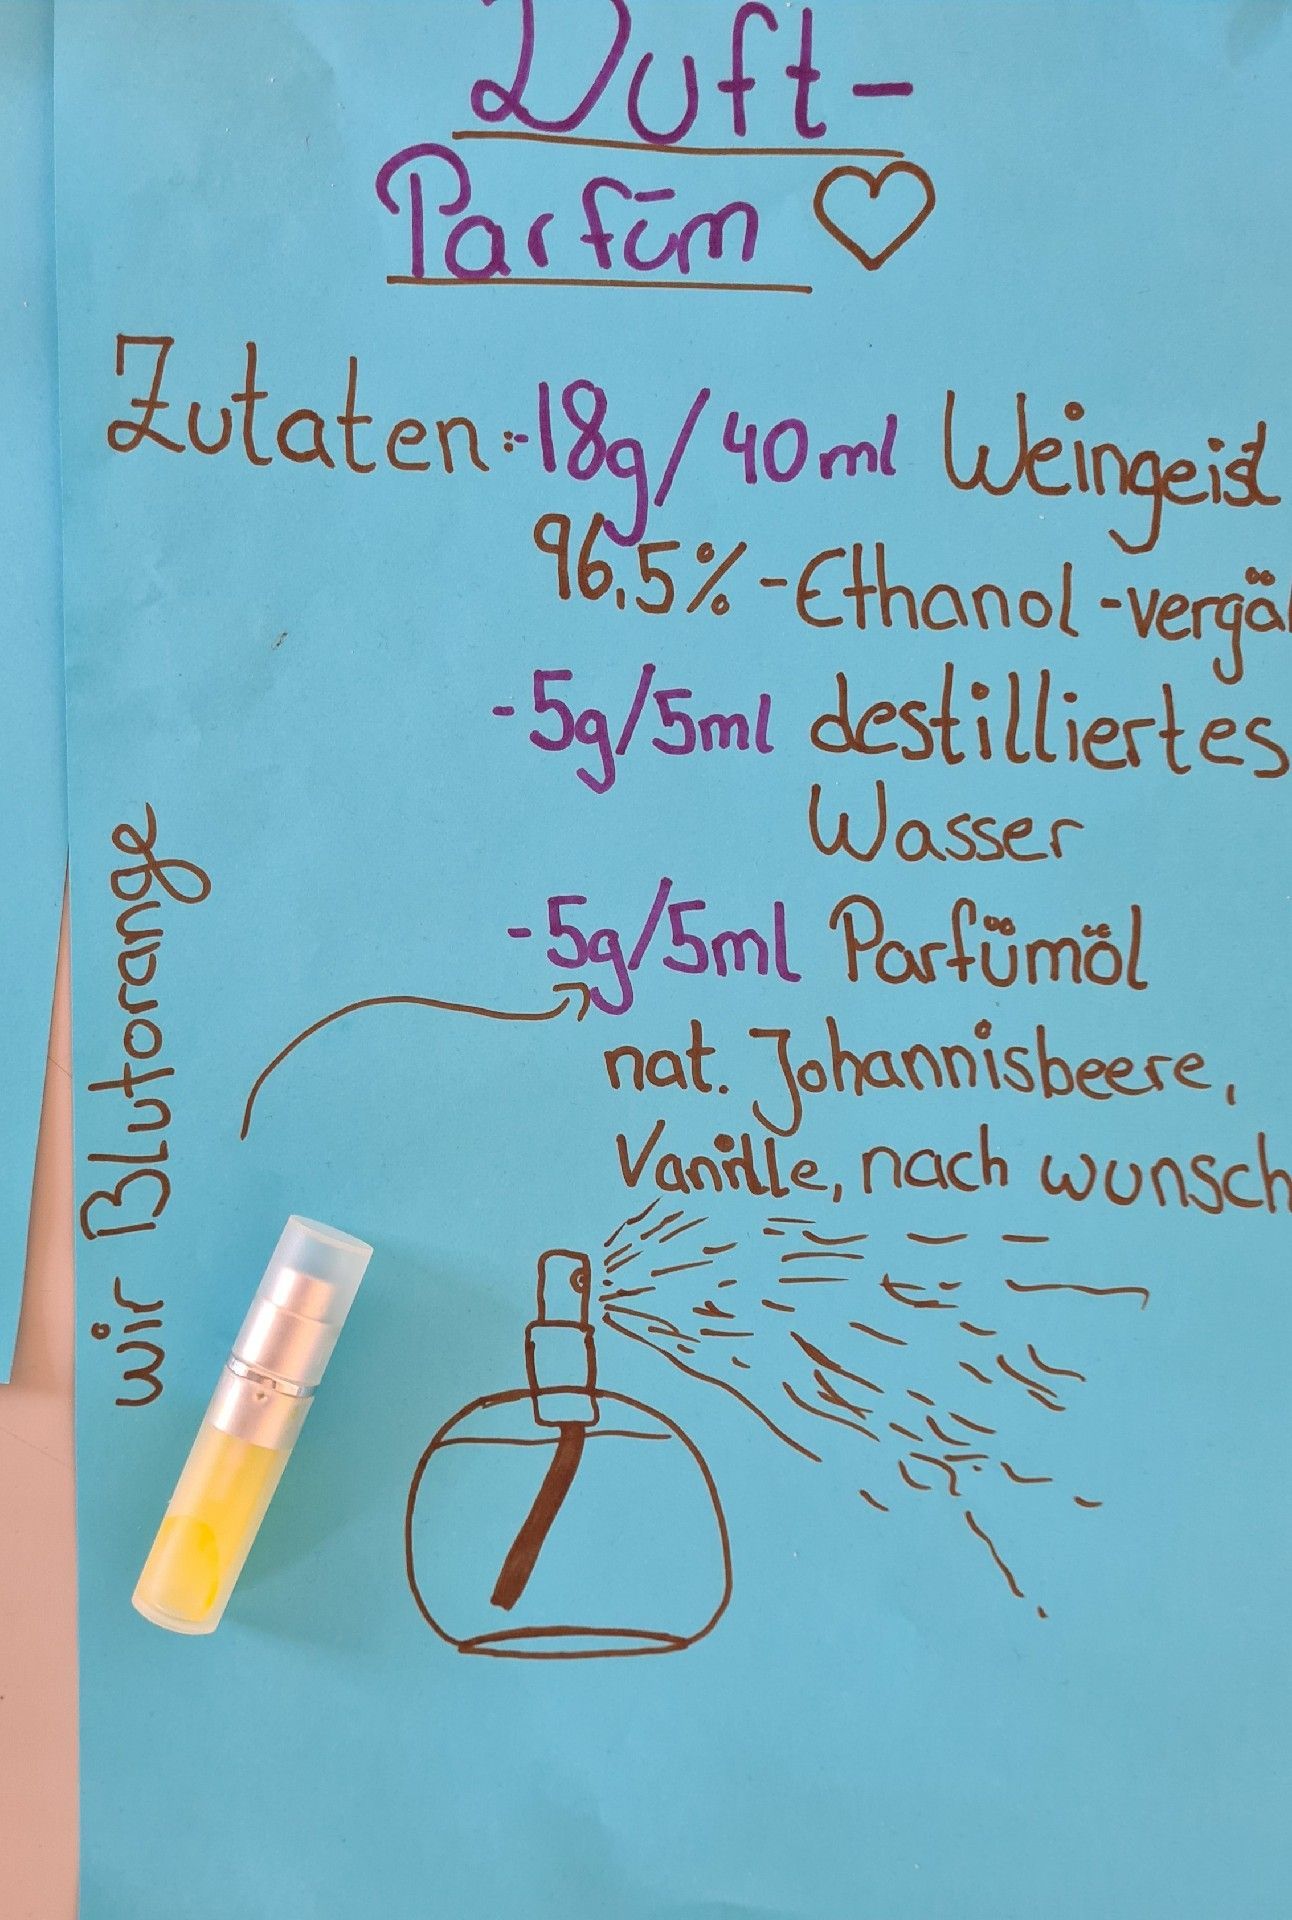 Duft-
Parfüm
Zutaten:-18g/40ml Weingeist
96,5%-Ethanol-vergäl
-5g/5ml destilliertes
Wasser
-5g/5ml Parfümöl
nat. Johannisbeere,
Vanille, nach wunsch
wir Blutorange